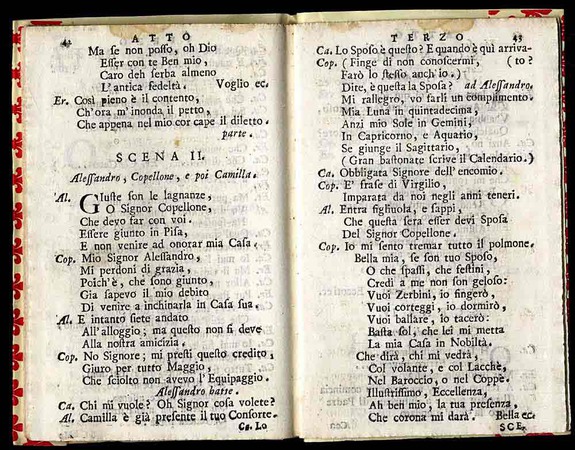 42
ATTO
Ma se non posso, oh Dio
Esser con te Ben mio,
Caro deh serba almeno
L'antica fedeltà. Voglio ec.
Er. Così pieno è il contento,
Ch'ora m'inonda il petto,
Che appena nel mio cor cape il diletto.
parte.
SCENA II.
Alessandro, Copellone, e poi Camilla.
Al. GIuste son le lagnanze,
O Signor Copellone,
Che devo far con voi.
Essere giunto in Pisa,
E non venire ad onorar mia Casa.
Cop. Mio Signor Alessandro,
Mi perdoni di grazia,
Poich'è, che sono giunto,
Gia sapevo il mio debito
Di venire a inchinarla in Casa sua.
Al. E intanto siete andato
All'alloggio; ma questo non si deve
Alla nostra amicizia.
Cop. No Signore; mi presti questo credito,
Giuro per tutto Maggio,
Che sciolto non avevo l'Equipaggio.
Alessandro batte.
Ca. Chi mi vuole? Oh Signor cosa volete?
Al. Camilla è già presente il tuo Consorte.
Ca. Lo
TERZO
43
Ca. Lo Sposo è questo? E quando è quì arriva-
Cop. (Finge di non conoscermi, (to?
Farò lo stesso anch'io.)
Dite, è questa la Sposa? ad Alessandro.
Mi rallegro, vo farli un complimento.
Mia Luna in quintadecima,
Anzi mio Sole in Gemini,
In Capricorno, e Aquario,
Se giunge il Sagittario,
(Gran bastonate scrive il Calendario.)
Ca. Obbligata Signore dell'encomio.
Cop. E' frase di Virgilio,
Imparata da noi negli anni teneri.
Al. Entra figliuola, e sappi,
Che questa sera esser devi Sposa
Del Signor Copellone.
Cop. Io mi sento tremar tutto il polmone.
Bella mia, se son tuo Sposo,
O che spassi, che festini,
Credi a me non son geloso:
Vuoi Zerbini, io fingerò,
Vuoi corteggi, io dormirò,
Vuoi ballare, io tacerò:
Basta sol, che lei mi metta
La mia Casa in Nobiltà.
Che dirà, chi mi vedrà,
Col volante, e col Lacchè,
Nel Baroccio, o nel Coppè.
Illustrissimo, Eccellenza,
Ah ben mio, la tua presenza,
Che corona mi darà. Bella ec.
SCE.